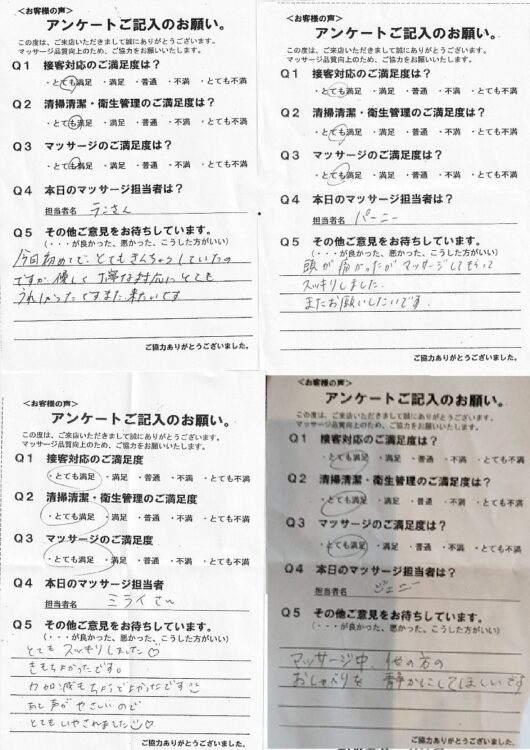 ＜お客様の声＞
アンケートご記入のお願い。
この度は、ご来店いただきまして誠にありがとうございます。
マッサージ品質向上のため、ご協力をお願いいたします。
Q1 接客対応のご満足度は？
・とても満足 ・満足 ・普通 ・不満 ・とても不満
Q2 清掃清潔・衛生管理のご満足度は？
・とても満足 ・満足 ・普通 ・不満 ・とても不満
Q3 マッサージのご満足度は？
・とても満足 ・満足 ・普通 ・不満 ・とても不満
Q4 本日のマッサージ担当者は？
担当者名 ランさん
Q5 その他ご意見をお待ちしています。
（・・・が良かった、悪かった、こうした方がいい）
今回初めてで、とてもきんちょうしていたの
ですが、優しく丁寧な対応にとても
うれしかったですまた来たいです
ご協力ありがとうございました。
＜お客様の声＞
アンケートご記入のお願い。
この度は、ご来店いただきまして誠にありがとうございます。
マッサージ品質向上のため、ご協力をお願いいたします。
Q1 接客対応のご満足度は？
・とても満足 ・満足 ・普通 ・不満 ・とても不満
Q2 清掃清潔・衛生管理のご満足度は？
・とても満足 ・満足 ・普通 ・不満 ・とても不満
Q3 マッサージのご満足度は？
・とても満足 ・満足 ・普通 ・不満 ・とても不満
Q4 本日のマッサージ担当者は？
担当者名 バーニー
Q5 その他ご意見をお待ちしています。
（・・・が良かった、悪かった、こうした方がいい）
頭が痛かったがマッサージしてもらって
スッキリしました.
またお願いしたいです.
ご協力ありがとうございました。
＜お客様の声＞
アンケートご記入のお願い。
この度は、ご来店いただきまして誠にありがとうございます。
マッサージ品質向上のため、ご協力をお願いいたします。
Q1 接客対応のご満足度
・とても満足 ・満足 ・普通 ・不満 ・とても不満
Q2 清掃清潔・衛生管理のご満足度
・とても満足 ・満足 ・普通 ・不満 ・とても不満
Q3 マッサージのご満足度
・とても満足 ・満足 ・普通 ・不満 ・とても不満
Q4 本日のマッサージ担当者
担当者名 ミライさん
Q5 その他ご意見をお待ちしています。
（・・・が良かった、悪かった、こうした方がいい）
とても スッキリしました♡
きもちよかったです。
力加減もちょうどよかったです
あと声がやさしいので
とてもいやされました♡
ご協力ありがとうございました。
＜お客様の声＞
アンケートご記入のお願い。
この度は、ご来店いただきまして誠にありがとうございます。
マッサージ品質向上のため、ご協力をお願いいたします。
Q1 接客対応のご満足度は？
・とても満足 ・満足 ・普通 ・不満 ・とても不満
Q2 清掃清潔・衛生管理のご満足度は？
・とても満足 ・満足 ・普通 ・不満 ・とても不満
Q3 マッサージのご満足度は？
・とても満足 ・満足 ・普通 ・不満 ・とても不満
Q4 本日のマッサージ担当者は？
担当者名 ジェニー
Q5 その他ご意見をお待ちしています。
（・・・が良かった、悪かった、こうした方がいい）
マッサージ中、他の方の
おしゃべりを 静かにしてほしいです
ご協力ありがとうございました。